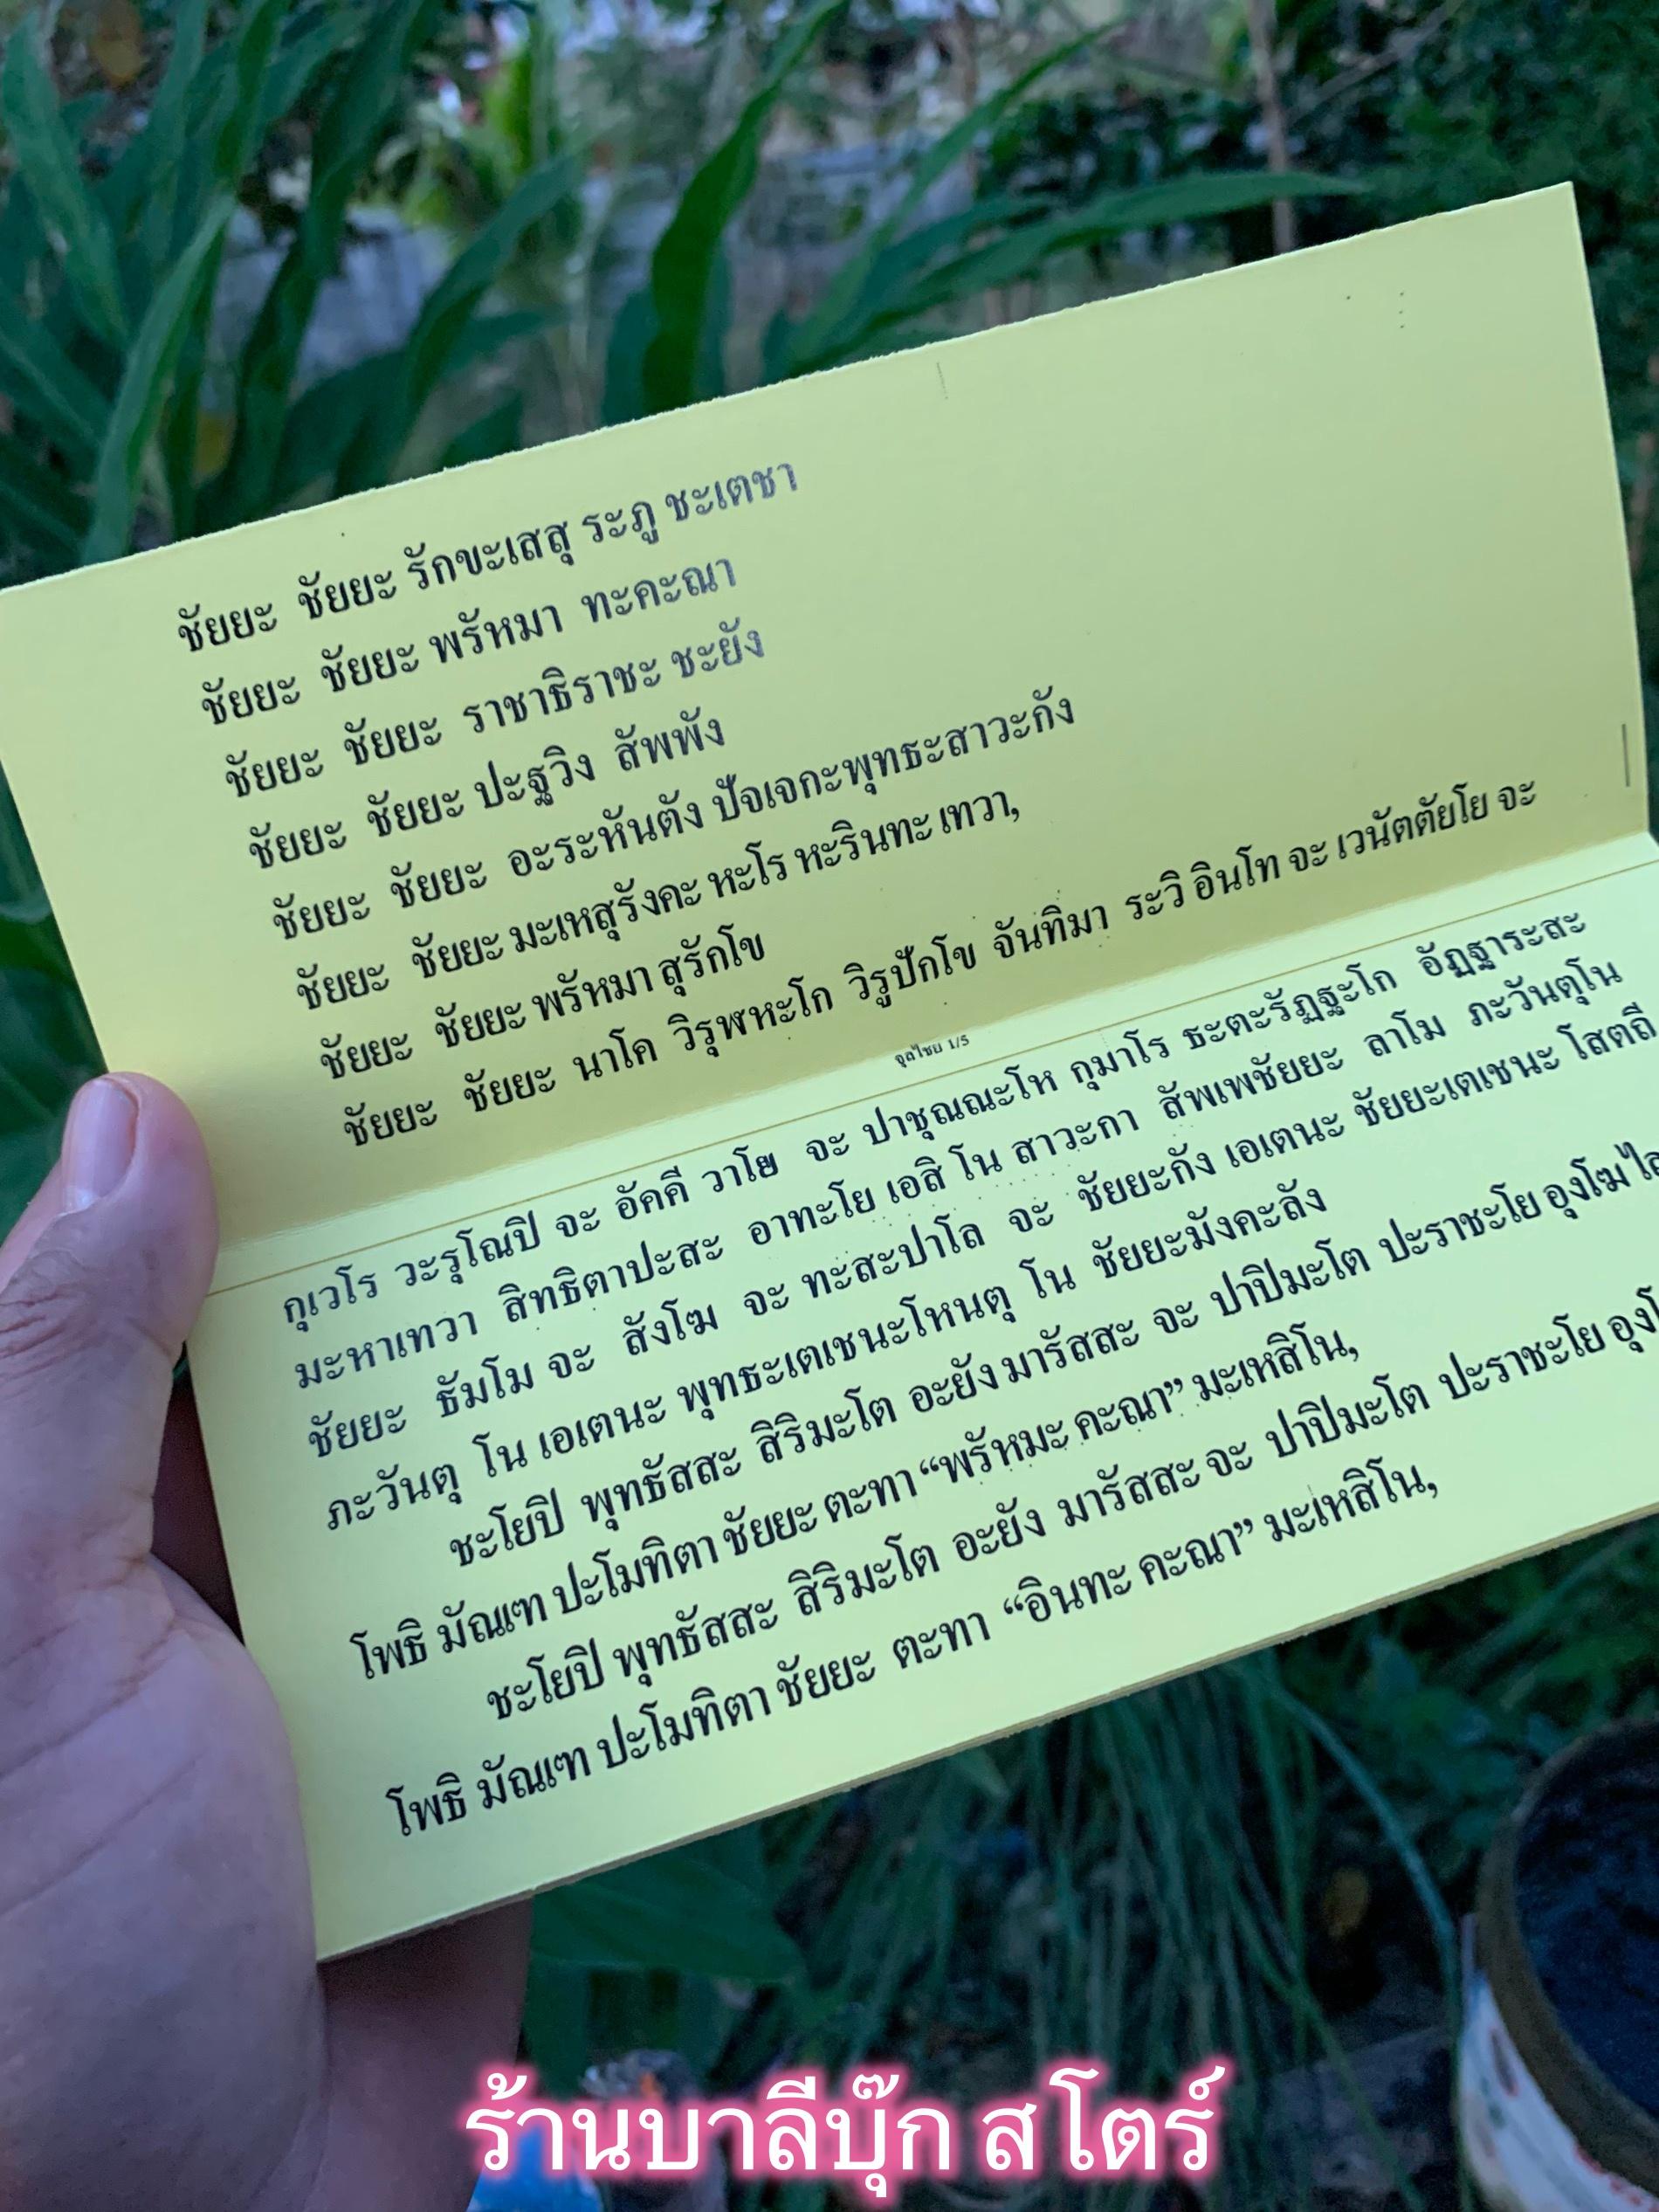 ชัยยะ ชัยยะ รักขะเสสุ ระภู ชะเตชา
ชัยยะ ชัยยะ พรัหมา ทะคะณา
ชัยยะ ชัยยะ ราชาธิราชะ ชะยัง
ชัยยะ ชัยยะ ปะฐวิง สัพพัง
ชัยยะ ชัยยะ อะระหันตัง ปัจเจกะพุทธะสาวะกัง
ชัยยะ ชัยยะ มะเหสุรังคะ หะโร หะรินทะ เทวา,
ชัยยะ ชัยยะ พรัหมา สุรักโข
ชัยยะ ชัยยะ นาโค วิรุฬหะโก วิรูปักโข จันทิมา ระวิ อินโท จะ เวนัตตัยโย จะ
จุลไชย 1/5
กุเวโร วะรุโณปิ จะ อัคคี วาโย จะ ปาชุณณะโห กุมาโร ธะตะรัฏฐะโก อัฏฐาระสะ
มะหาเทวา สิทธิตาปะสะ อาทะโย เอสิ โน สาวะกา สัพเพชัยยะ ลาโม ภะวันตุโน
ชัยยะ ธัมโม จะ สังโฆ จะ ทะสะปาโล จะ ชัยยะกัง เอเตนะ ชัยยะเตเชนะ โสตถี
ภะวันตุ โน เอเตนะ พุทธะเตเชนะโหนตุ โน ชัยยะมังคะลัง
ชะโยปิ พุทธัสสะ สิริมะโต อะยัง มารัสสะ จะ ปาปิมะโต ปะราชะโย อุงโฆ
โพธิ มัณเฑ ปะโมทิตา ชัยยะ ตะทา “พรัหมะ คะณา” มะเหสิโน,
ชะโยปิ พุทธัสสะ สิริมะโต อะยัง มารัสสะ จะ ปาปิมะโต ปะราชะโย
โพธิ มัณเฑ ปะโมทิตา ชัยยะ ตะทา “อินทะ คะณา” มะเหสิโน,
ร้านบาลีบุ๊ก สโตร์